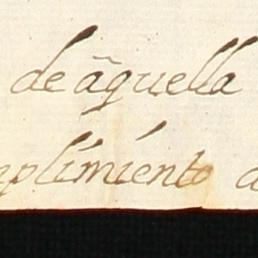 de ãquella
mplimiento a